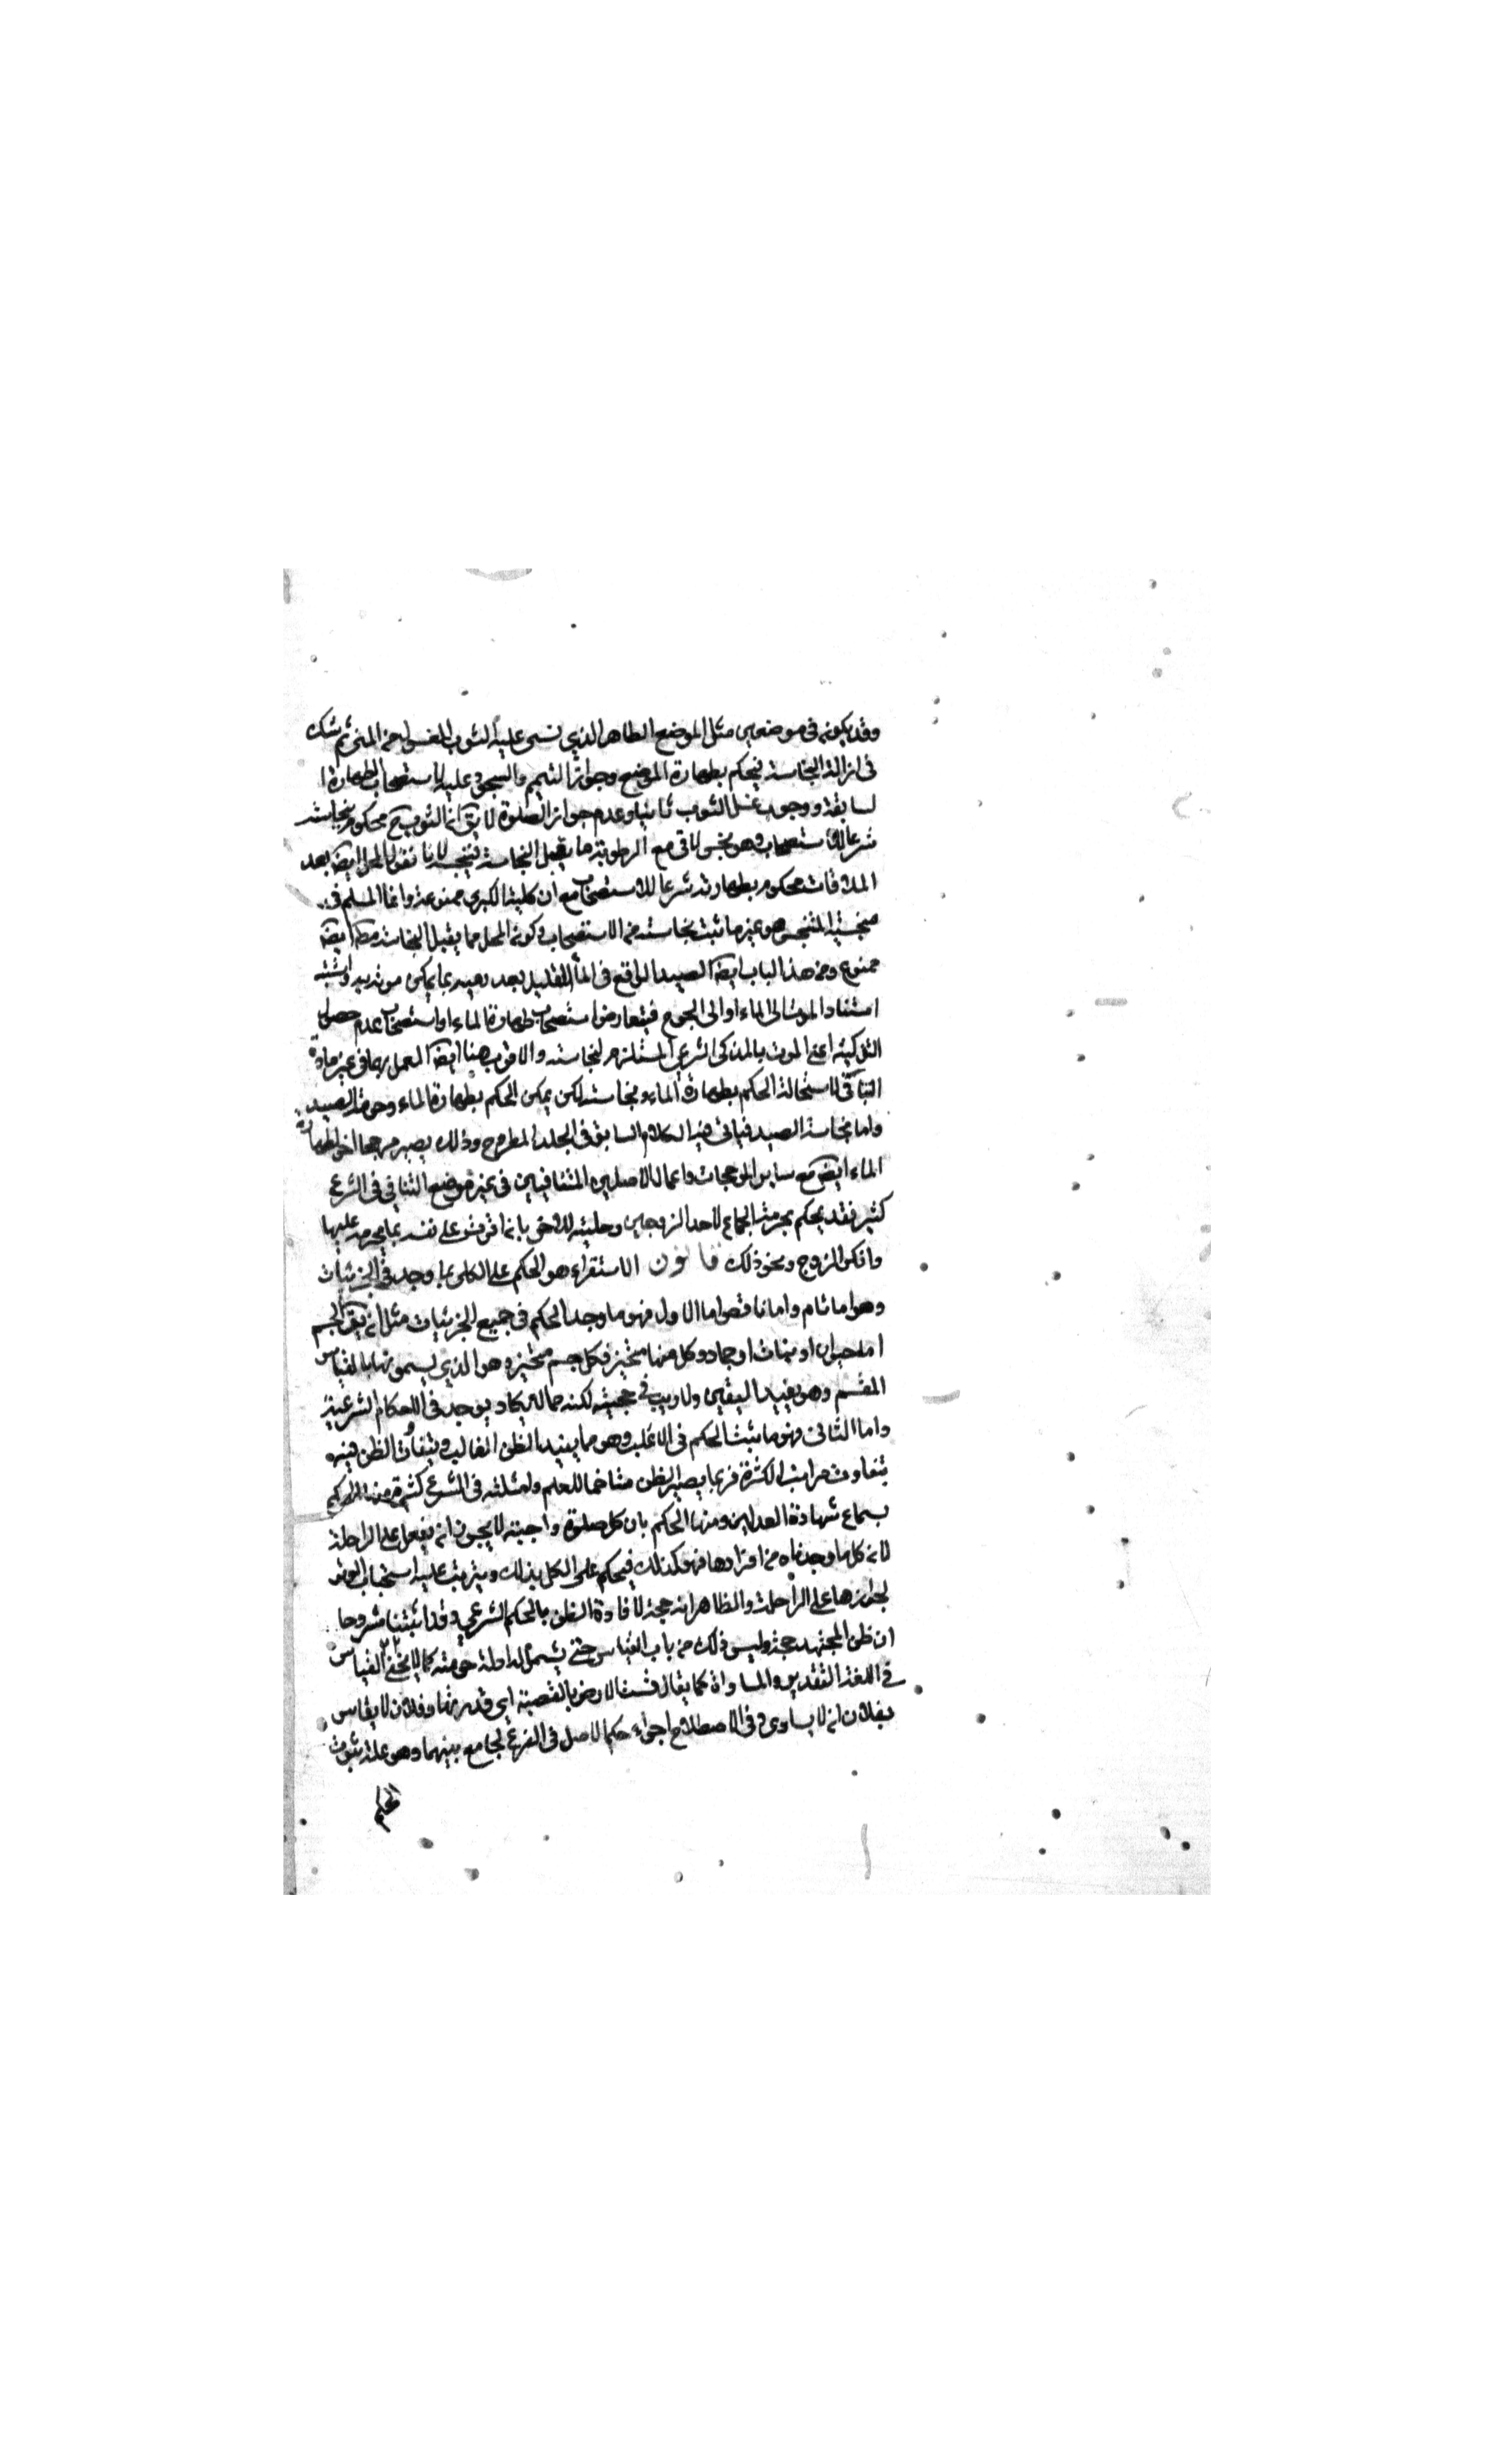 وقد يكون في موضعين مثل الموضع الطاهر الذي نشر عليه الثوب المغسول من المني ثم شك
في ازالة النجاسة فيحكم بطهارة الموضع وجواز التيمم والسجود عليه لاستصحاب الطهارة ا
لسابقة ووجوب غسل الثوب ثانيا وعدم جواز الصلوة لا يق ان الثوب ح محكوم بنجاسته
شرعا للاستصحاب وهو نجس لاقى مع الرطوبة ما يقبل النجاسة فينجسه لانا نقول المحل ايضا بعد
الملاقات محكوم بطهارته شرعا للاستصحاب مع ان كلية الكبرى ممنوعة وانما المسلم في
منجسية المتنجس هو غير ما ثبت نجاسته من الاستصحاب وكون المحل مما يقبل النجاسة مط ايضا
ممنوع ومن هذا الباب ايضا الصيد الواقع في الماء القليل بعد رميه بما يمكن موته به واشتبه
استناد الموت الى الماء او الى الجرح فيتعارض استصحاب طهارة الماء واستصحاب عدم حصول
التذكية اعني الموت بالمذكى الشرعي المستلزم لنجاسته والاقرب هنا ايضا العمل بهما في غير مادة
التنافي لاستحالة الحكم بطهارة الماء ونجاسته لكن يمكن الحكم بطهارة الماء وحرمة الصيد
واما نجاسة الصيد فياتي فيه الكلام السابق في الجلد المطروح وذلك يصير مرجحا اخر لطهارة
الماء ايضا مع ساير المرجحات واعمال الاصلين المتنافيين في غير موضع التنافي في الشرع
كثير فقد يحكم بحرمة الجماع لاحد الزوجين وحليته للاخر بان اقرت على نفسه بما يحرمه عليها
وانكر الزوج ونحو ذلك قانون الاستقراء هو الحكم على الكلي بما وجد في الجزئيات
وهو اما تام واما ناقص اما الاول فهو ما وجد الحكم في جميع الجزئيات مثل ان يق الجسم
اما حيوان او نبات او جماد وكل منها متحيز فكل جسم متحيز وهو الذي يسمونها بالقياس
المقسم وهو يفيد اليقين ولا ريب في حجيته لكنه مما لا يكاد يوجد في الاحكام الشرعية
واما الثاني فهو ما ثبت الحكم في الاغلب وهو مما يفيد الظن الغالب ويتفاوت الظن فيه
بتفاوت مراتب الكثرة فربما يصير الظن متاخما للعلم وامثلته في الشرع كثيرة منها الحكم
بسماع شهادة العدلين ومنها الحكم بان كل صلوة واجبة لا يجوز ان يفعل على الراحلة
لان كلما وجدناه من افرادها فهو كذلك فيحكم على الكل بذلك ويترتب عليه استحباب الوتر
لجوازها على الراحلة والظاهر انه حجة لافادة الظن بالحكم الشرعي وقد اثبتنا مشروحا
ان ظن المجتهد حجة وليس ذلك من باب القياس حتى يشمله ادلة حرمته كما لا يخفى القياس
في اللغة التقدير والمساواة كما يقال قست الارض بالقصبة اي قدرتها وفلان لا يقاس
بفلان اي لا يساوى وفي الاصطلاح اجراء حكم الاصل في الفرع لجامع بينهما وهو علة ثبوت
الحكم